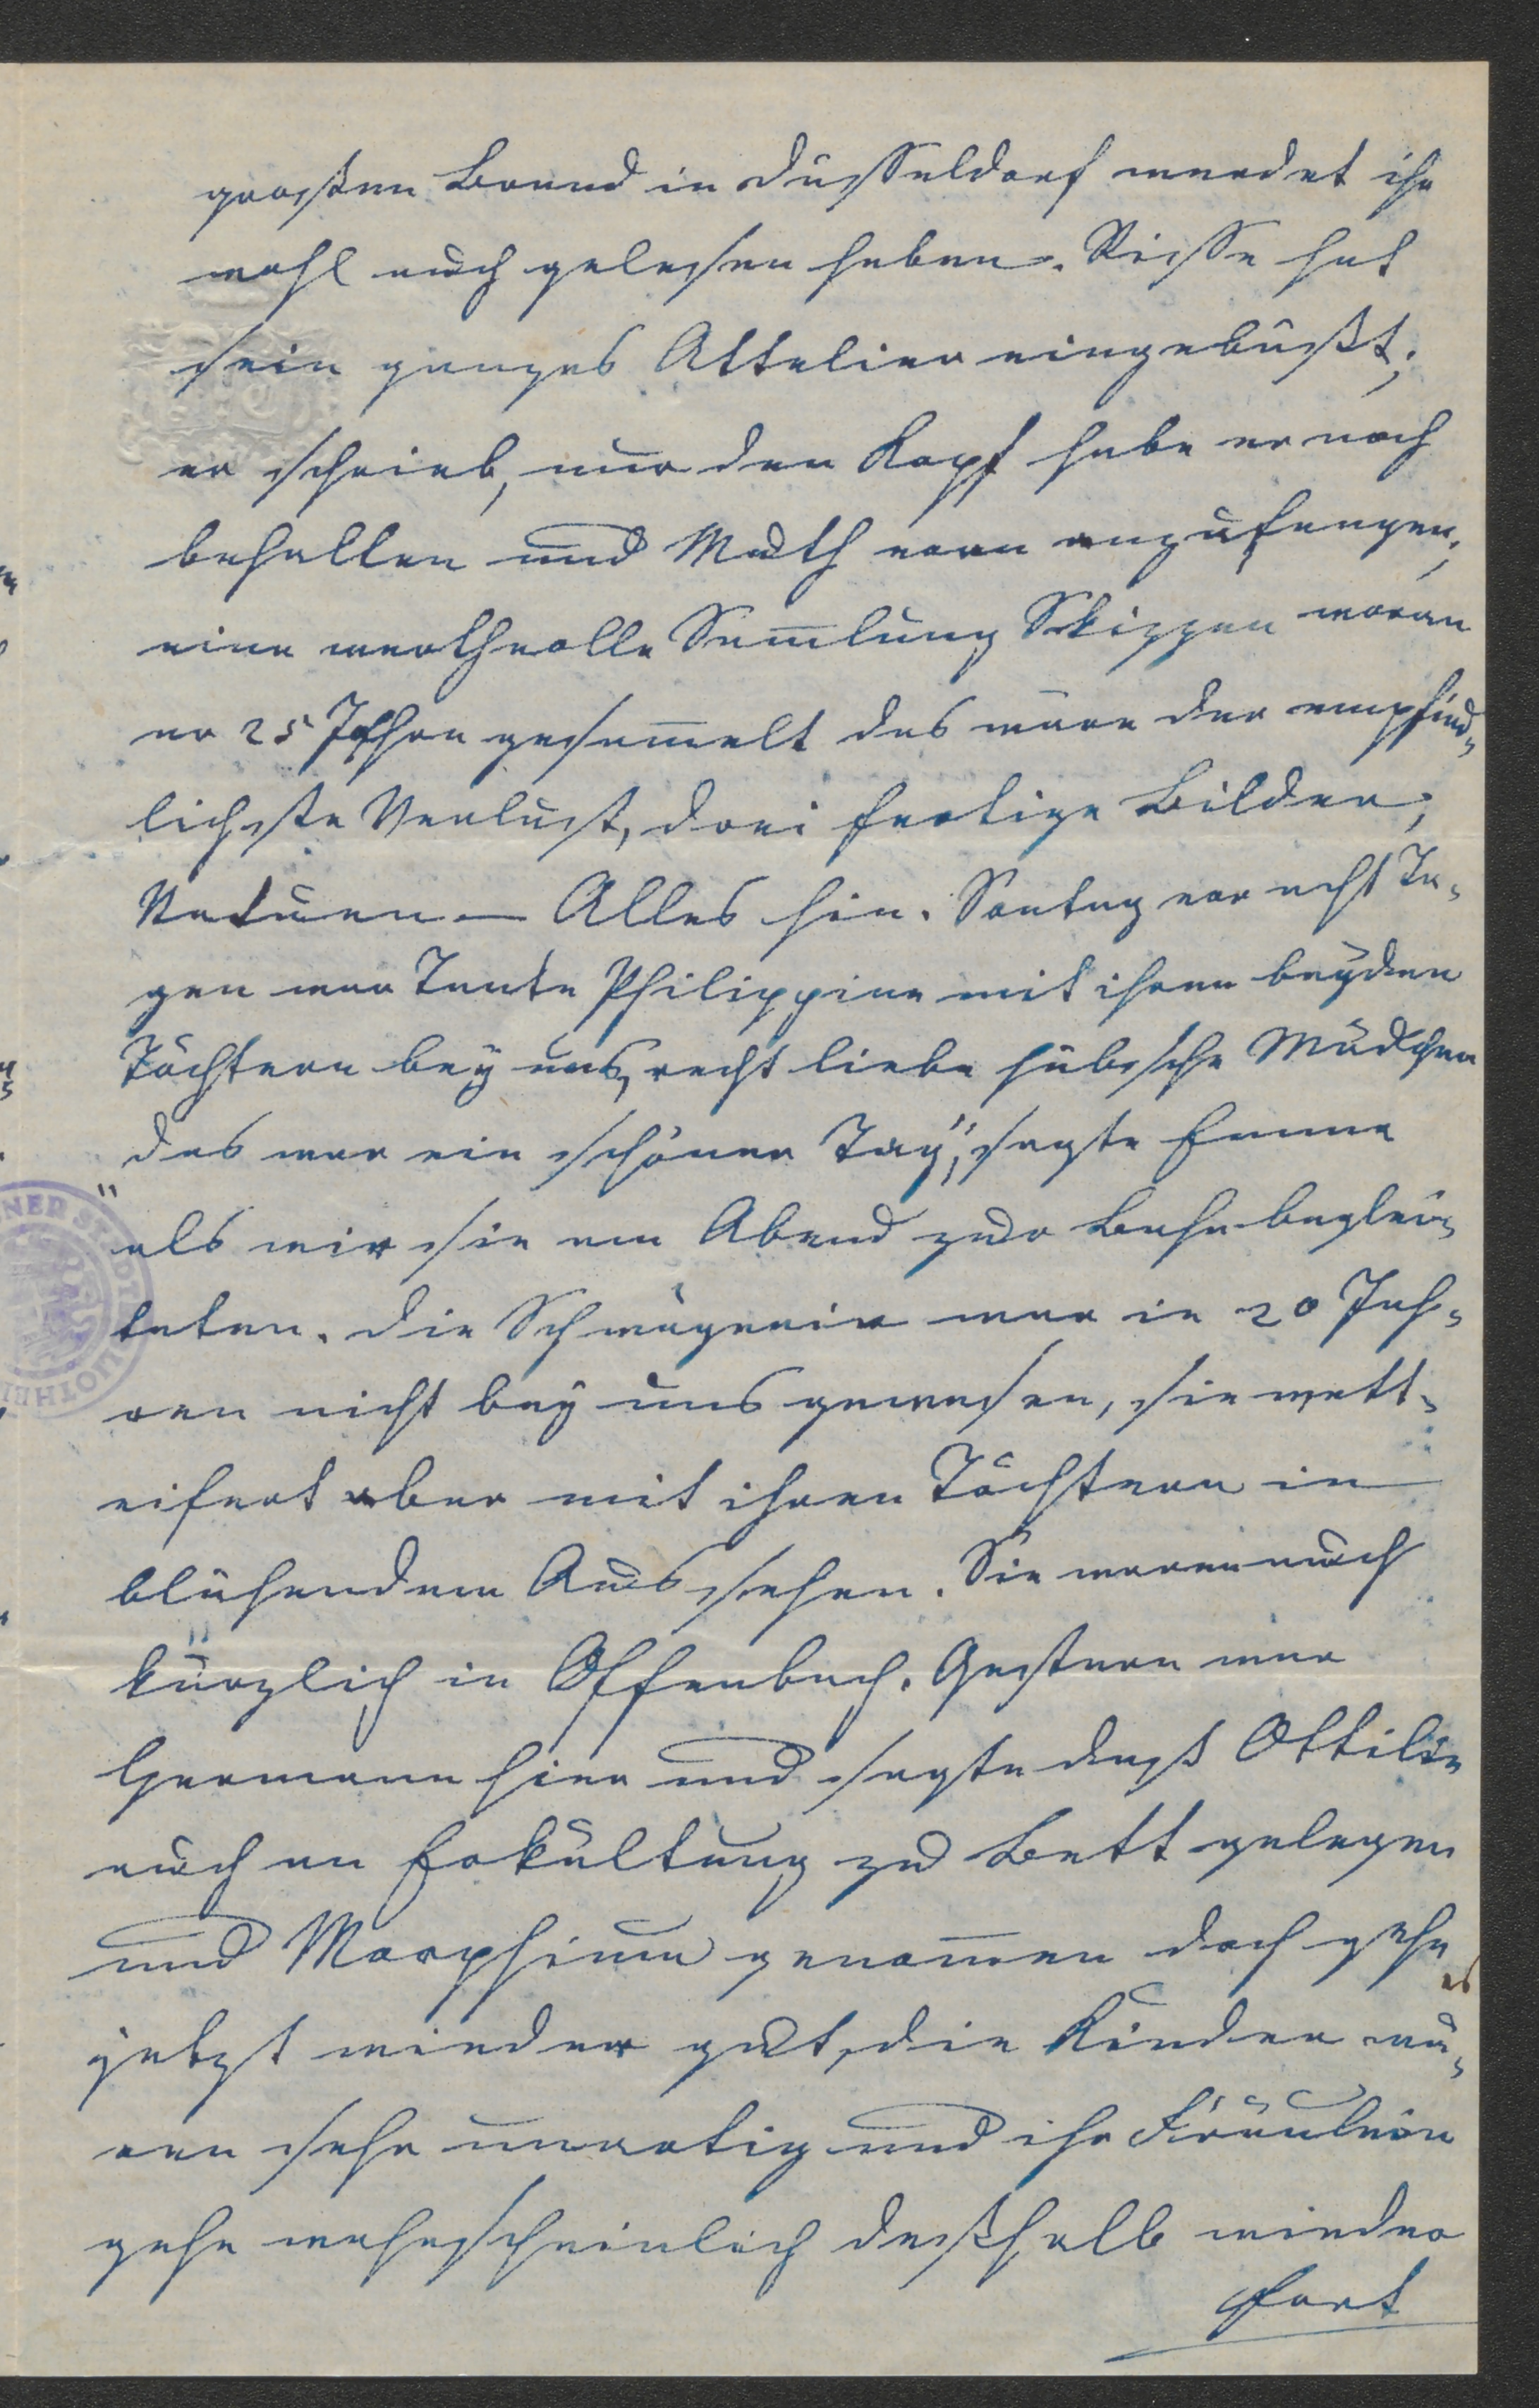 großen Brand in Düsseldorf werdet ihr
wohl auch gelesen haben. Risse hat
sein ganzes Attelier eingebüßt;
er schrieb, nur den Kopf habe er noch
behalten und Muth vorn anzufangen;
eine werthvolle Sam̅lung Skizzen woran
er 25 Jahre gesam̅elt das wäre der empfind-
lichste Verlust, drei fertige Bilder,
Naturen — Alles hin. Sontag vor acht Ta-
gen war Tante Philippine mit ihren beyden
Töchtern bey uns, recht liebe hübsche Mädchen
"das war ein schöner Tag", sagte Emma
als wir sie am Abend zur Bahn beglei-
teten. Die Schwägerin war in 20 Jah-
ren nicht bey uns gewesen, sie wett-
eifert aber mit ihren Töchtern in
blühendem Aussehen. Sie waren auch
kürzlich in Offenbach. Gestern war
Hermann hier und sagte daß Ottilie
auch an Erkältung zu Bett gelegen
und Morphium genom̅en doch gehe es
jetzt wieder gut, die Kinder wä-
ren sehr unartig und ihr Fräulein
gehe wahrscheinlich deßhalb wieder
fort